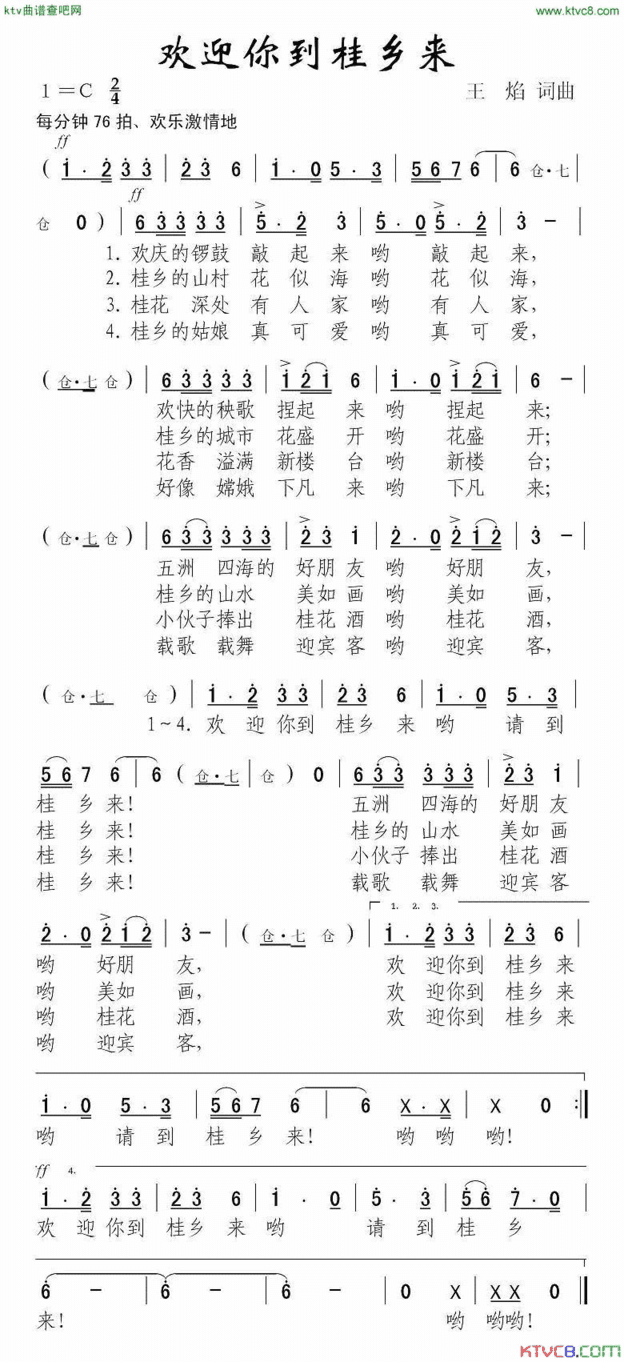 ktv曲谱查吧网 www.ktvc8.com
欢迎你到桂乡来
1=C 2/4 王 焰 词曲
每分钟76拍、欢乐激情地
ff
( i · 2 3 3 | 2 3 6 | i · 0 5 · 3 | 5 5 6 7 6 | 6 仓·七
ff
仓 0 ) | 6 3 3 3 3 | 5 · 2 3 | 5 · 0 5 · 2 | 3 - |
1. 欢庆的锣鼓 敲 起 来 哟 敲 起 来,
2. 桂乡的山村 花 似 海 哟 花 似 海,
3. 桂花 深处 有 人 家 哟 有 人 家,
4. 桂乡的姑娘 真 可 爱 哟 真 可 爱,
( 仓·七 仓 ) | 6 3 3 3 3 | i 2 i 6 | i · 0 i 2 i | 6 - |
欢快的秧歌 捏起 来 哟 捏起 来;
桂乡的城市 花盛 开 哟 花盛 开;
花香 溢满 新楼 台 哟 新楼 台;
好像 嫦娥 下凡 来 哟 下凡 来;
( 仓·七 仓 ) | 6 3 3 3 3 3 | 2 3 i | 2 · 0 2 i 2 | 3 - |
五洲 四海的 好朋 友 哟 好朋 友,
桂乡的山水 美如 画 哟 美如 画,
小伙子捧出 桂花 酒 哟 桂花 酒,
载歌 载舞 迎宾 客 哟 迎宾 客,
( 仓·七 仓 ) | i · 2 3 3 | 2 3 6 | i · 0 5 · 3 |
1~4. 欢 迎 你到 桂乡 来 哟 请 到
5 6 7 6 | 6 ( 仓·七 | 仓 ) 0 | 6 3 3 3 3 3 | 2 3 i |
桂 乡 来! 五洲 四海的 好朋 友
桂 乡 来! 桂乡的 山水 美如 画
桂 乡 来! 小伙子 捧出 桂花 酒
桂 乡 来! 载歌 载舞 迎宾 客
1. 2. 3.
2 · 0 2 i 2 | 3 - | ( 仓·七 仓 ) | i · 2 3 3 | 2 3 6 |
哟 好朋 友, 欢 迎你到 桂乡 来
哟 美如 画, 欢 迎你到 桂乡 来
哟 桂花 酒, 欢 迎你到 桂乡 来
哟 迎宾 客,
i · 0 5 · 3 | 5 6 7 6 | 6 X · X | X 0 :||
哟 请 到 桂 乡 来! 哟 哟 哟!
ff 4.
i · 2 3 3 | 2 3 6 | i · 0 | 5 · 3 | 5 6 7 · 0 |
欢 迎 你到 桂乡 来 哟 请 到 桂 乡
6 - | 6 - | 6 - | 0 X | X X 0 ||
来! 哟 哟哟!
KTVC8.COM